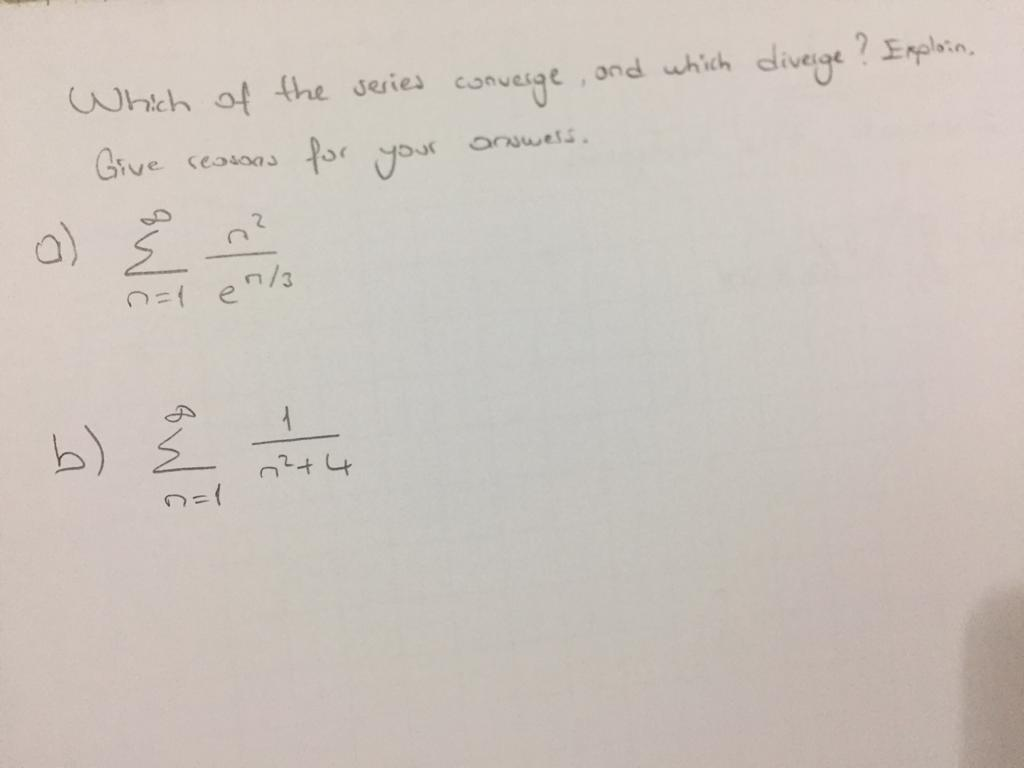 Which of the series converge, and which diverge? Explain.
Give reasons for your answers.
a) ∑_{n=1}^{∞} n²/e^{n/3}
b) ∑_{n=1}^{∞} 1/(n²+4)